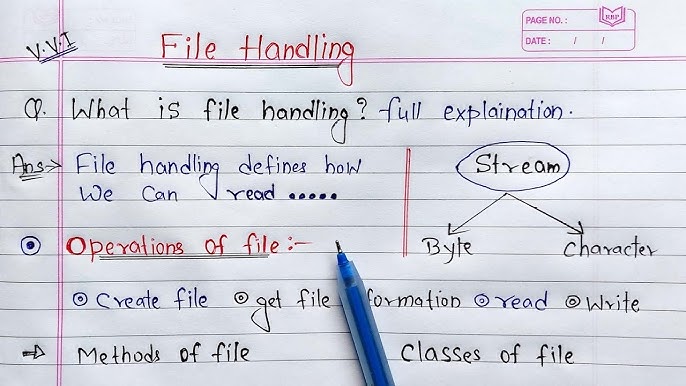 PAGE NO.:
RBP
DATE: / /
V.V.I
File Handling
Q. What is file handling? full explaination.
Ans:→ File handling defines how
We Can read .....
Stream
Byte
Character
Operations of file:-
Create file get file formation read Write
⇒ Methods of file
Classes of file